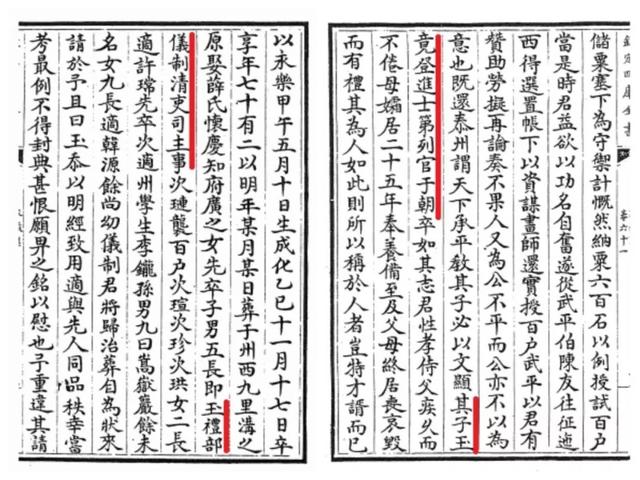 欽定四庫全書
卷六十一
儲粟塞下為守禦計慨然納粟六百石以例授試百戶
當是時君益欲以功名自奮遂從武平伯陳友往征迤
西得選置帳下以資謀畫師還實授百戶武平以君有
贊助勞擬再論奏不果人又為公不平而公亦不以為
意也既還泰州謂天下承平教其子必以文顯其子玉
竟登進士第列官于朝卒如其志君性孝侍父疾久而
不倦母孀居二十五年奉養備至及父母終居喪哀毀
而有禮其為人如此則所以稱於人者豈特才谞而已
以永樂甲午五月十日生成化乙巳十一月十七日卒
享年七十有二以明年某月某日葬于州西九里溝之
原娶薛氏懷慶知府廣之女先卒子男五長即玉禮部
儀制清吏司主事次璉襲百戶次瑄次珍次珙女二長
適許瑞先卒次適州學生李鑨孫男九曰嵩嶽巖餘未
名女九長適韓源餘尚幼儀制君將歸治葬自為狀來
請於予且曰玉忝以明經致用適與先人同品秩幸當
考最例不得封典甚恨願畀之銘以慰也予重違其請